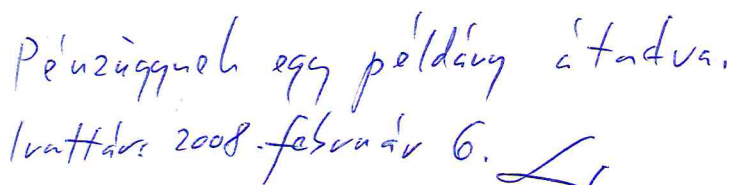 Pénzügynek egy példány átadva.
Irattár: 2008. február 6.